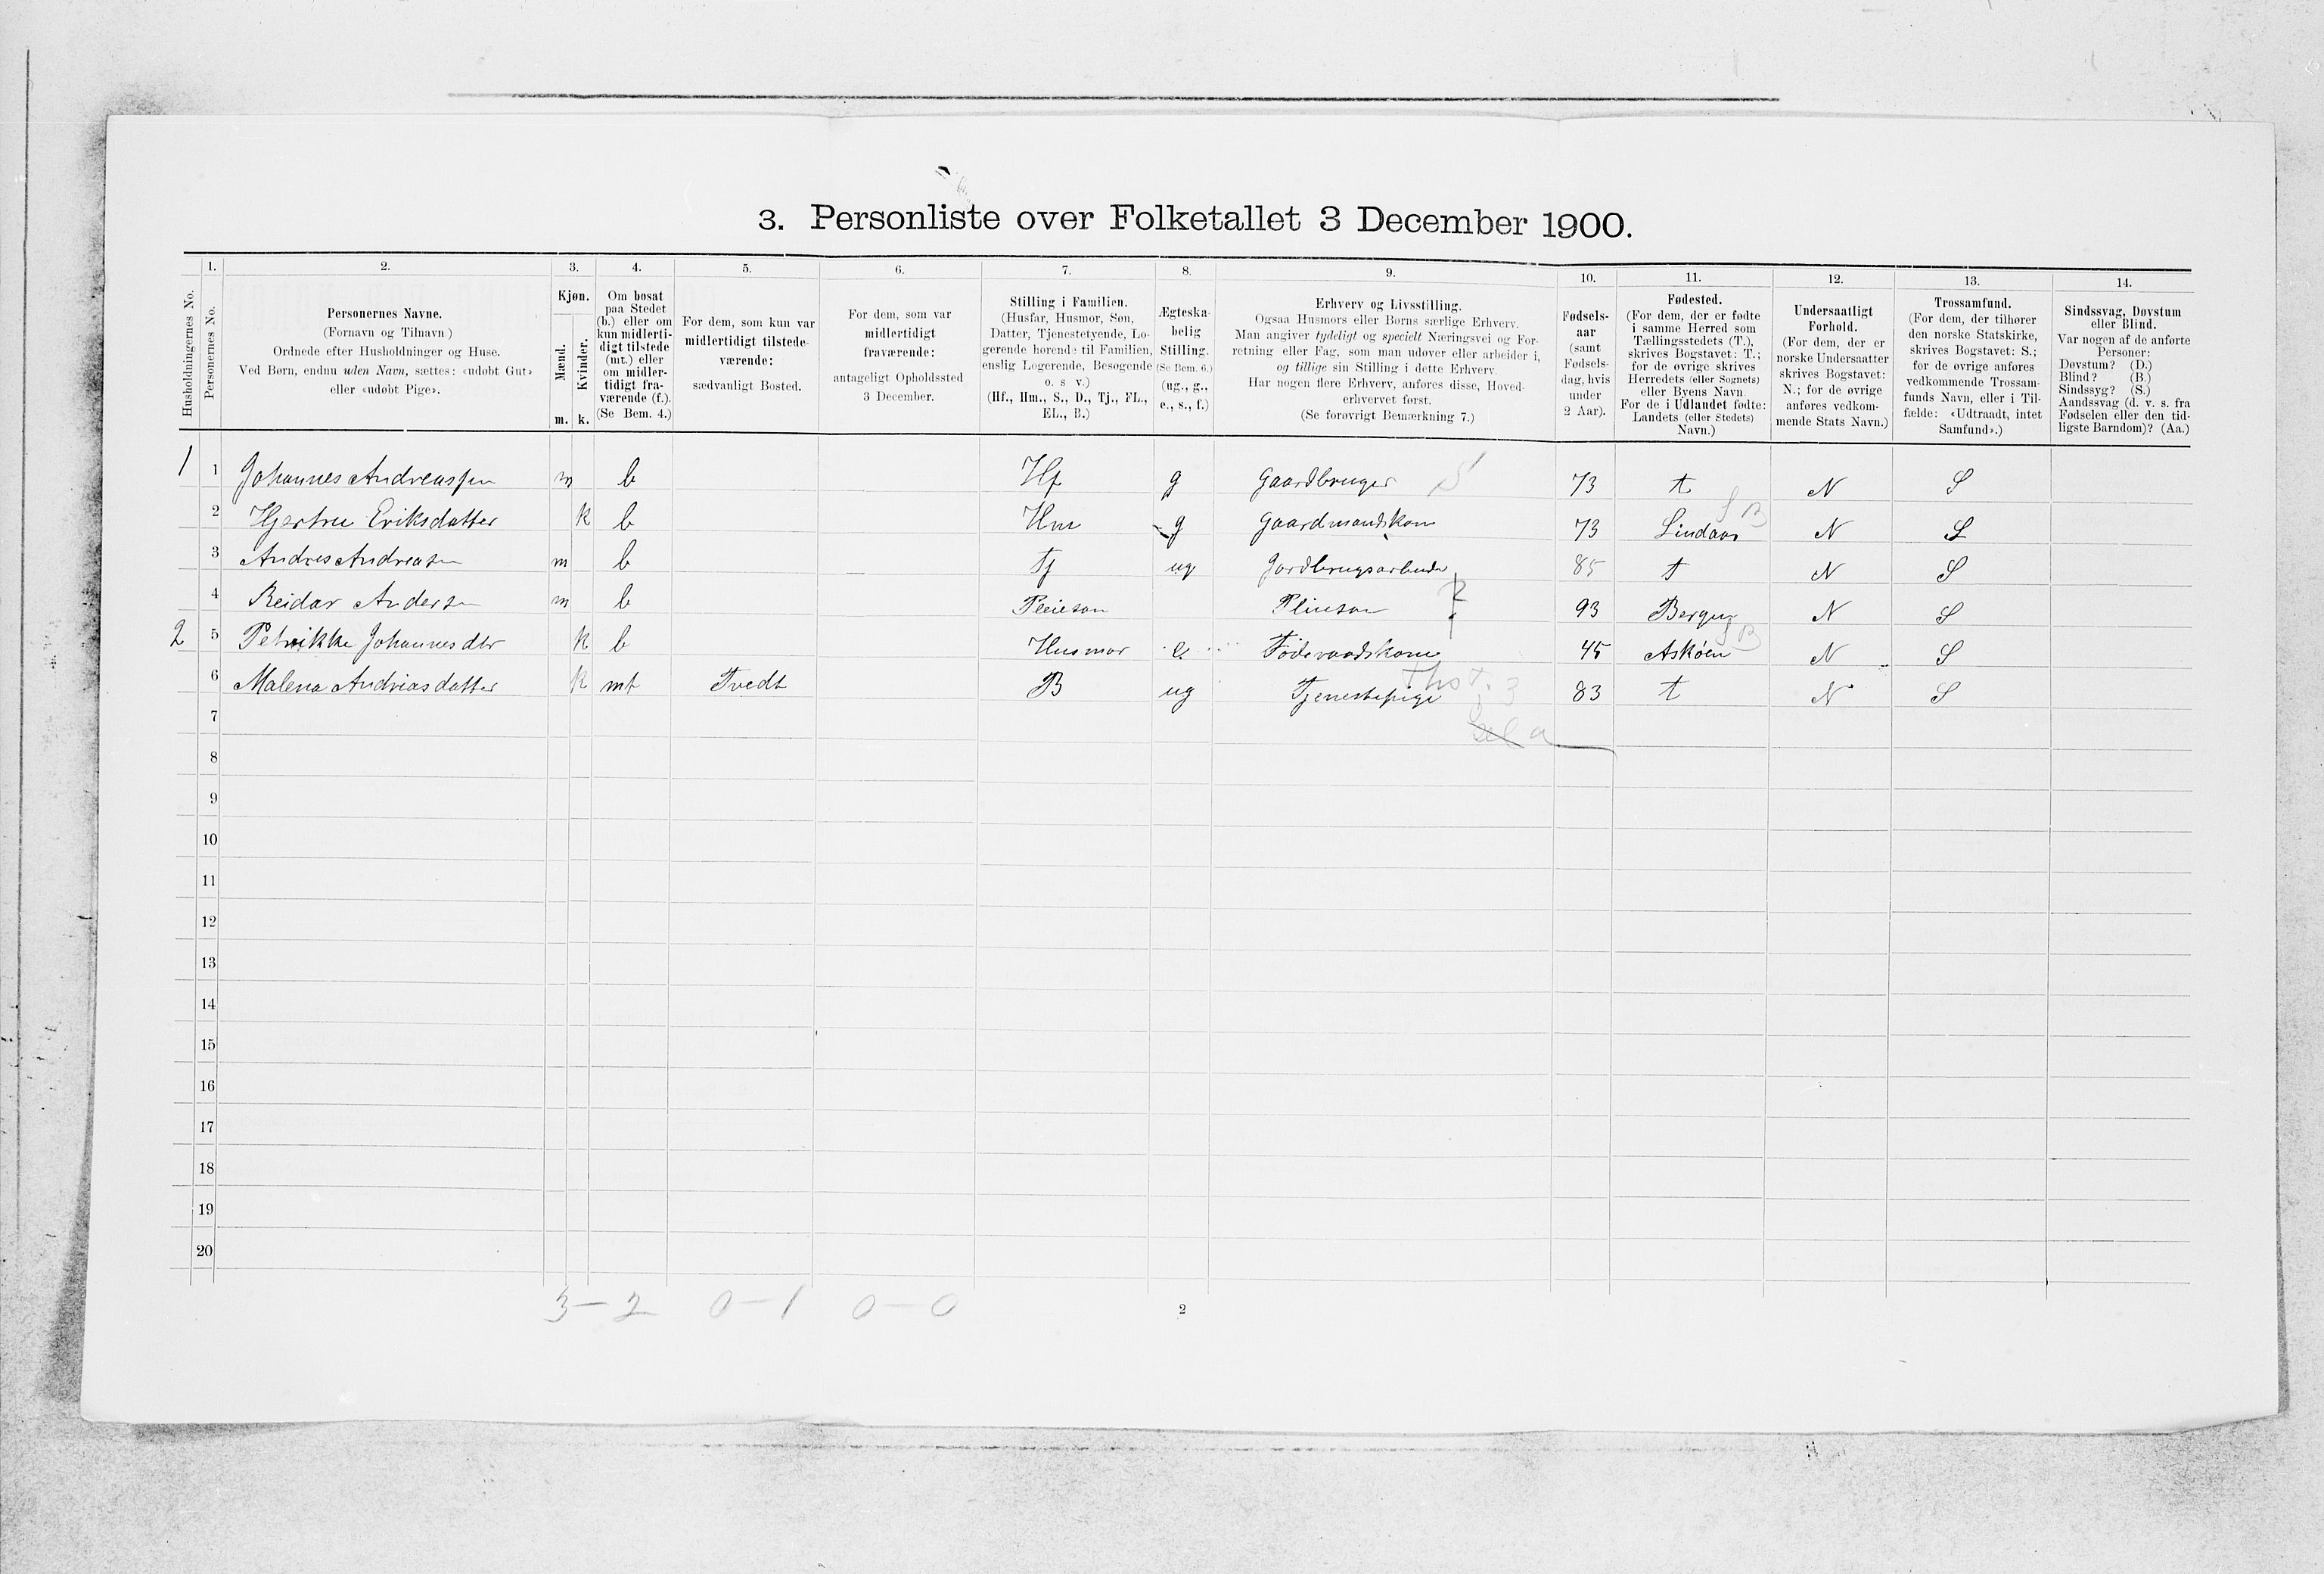 3. Personliste over Folketallet 3 December 1900.
1. 2. 3. 4. 5. 6. 7. 8. 9. 10. 11. 12. 13. 14.
Husholdningernes No.
Personernes No.
Personernes Navne.
(Fornavn og Tilnavn.)
Ordnede efter Husholdninger og Huse.
Ved Børn, endnu uden Navn, sættes: «udøbt Gut»
eller «udøbt Pige».
Kjøn.
Mænd.
Kvinder.
m. k.
Om bosat
paa Stedet
(b.) eller om
kun midlerti-
digt tilstede
(mt.) eller
om midler-
tidigt fra-
værende (f.).
(Se Bem. 4.)
For dem, som kun var
midlertidigt tilstede-
værende:
sædvanligt Bosted.
For dem, som var
midlertidigt
fraværende:
antageligt Opholdssted
3 December.
Stilling i Familien.
(Husfar, Husmor, Søn,
Datter, Tjenestetyende, Lo-
gerende hørende til Familien,
enslig Logerende, Besøgende
o. s v.)
(Hf., Hm., S., D., Tj., FL.,
EL., B.)
Ægteska-
belig
Stilling.
(Se Bem. 6.)
(ug., g.,
e., s., f.)
Erhverv og Livsstilling.
Ogsaa Husmors eller Børns særlige Erhverv.
Man angiver tydeligt og specielt Næringsvei og For-
retning eller Fag, som man udøver eller arbeider i,
og tillige sin Stilling i dette Erhverv.
Har nogen flere Erhverv, anføres disse, Hoved-
erhvervet først.
(Se forøvrigt Bemærkning 7.)
Fødsels-
aar
(samt
Fødsels-
dag, hvis
under
2 Aar).
Fødested.
(For dem, der er fødte
i samme Herred som
Tællingsstedets (T.),
skrives Bogstavet: T.;
for de øvrige skrives
Herredets (eller Sognets)
eller Byens Navn.
For de i Udlandet fødte:
Landets (eller Stedets)
Navn.)
Undersaatligt
Forhold.
(For dem, der er
norske Undersaatter
skrives Bogstavet:
N.; for de øvrige
anføres vedkom-
mende Stats Navn.)
Trossamfund.
(For dem, der tilhører
den norske Statskirke,
skrives Bogstavet: S.;
for de øvrige anføres
vedkommende Trossam-
funds Navn, eller i Til-
fælde: «Udtraadt, intet
Samfund».)
Sindssvag, Døvstum
eller Blind.
Var nogen af de anførte
Personer:
Døvstum? (D.)
Blind? (B.)
Sindssyg? (S.)
Aandssvag (d. v. s. fra
Fødselen eller den tid-
ligste Barndom)? (Aa.)
1 1 Johannes Andreassen m b Hf g Gaardbruger 73 t N S
2 Hjertru Eriksdatter k b Hm g Gaardmandskone 73 Lindaas N S
3 Andres Andreasen m b Tj ug Jordbrugsarbeider 85 t N S
4 Reidar Andersen m b Pleieson Pleieson 93 Bergen N S
2 5 Petrikke Johannesdtr k b Husmor e Føderaadskone 45 Askøen N S
6 Malena Andreasdatter k mt Tvedt B ug Tjenestepige 83 t N S
7
8
9
10
11
12
13
14
15
16
17
18
19
20
3 - 2 0 - 1 0 - 0
2